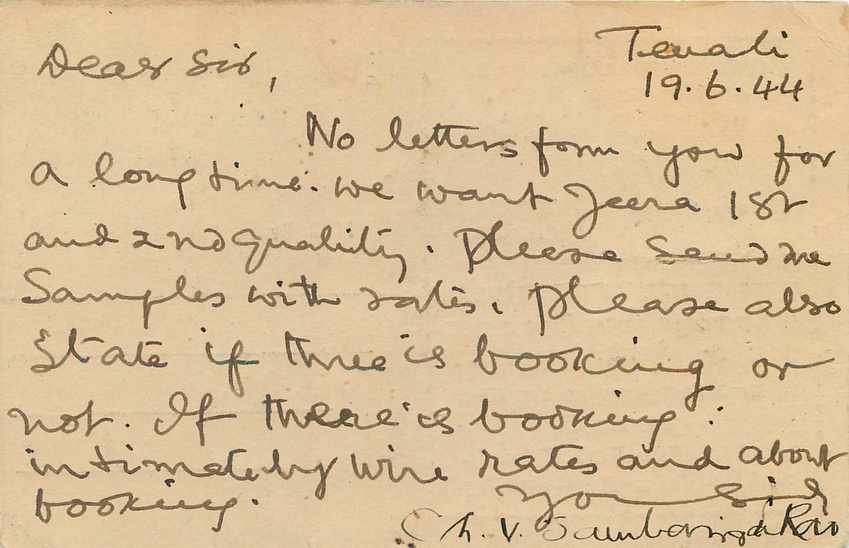 Tenali
19.6.44
Dear Sir,
No letters form you for
a long time. we want Jeera 1st
and 2nd quality. Please send me
Samples with rates. Please also
State if three is booking or
not. If there is booking.
intimate by wire rates and about
booking.
Ch. V. Sambasiva Rao